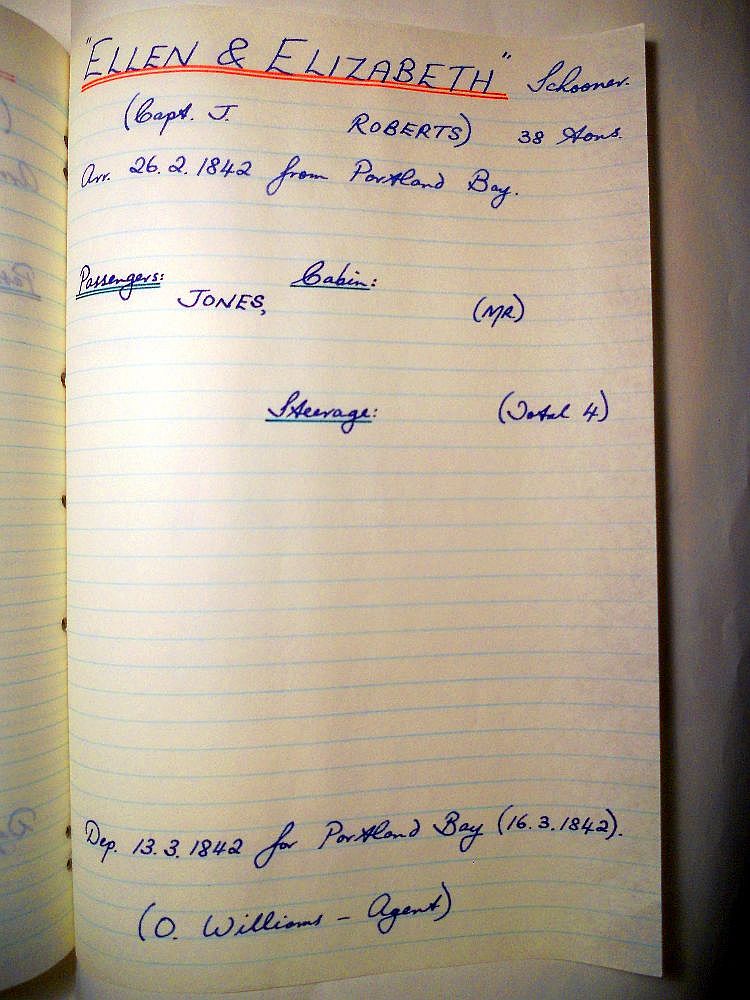 "ELLEN & ELIZABETH" Schooner.
(Capt. J. ROBERTS) 38 tons.
Arr. 26.2.1842 from Portland Bay.
Passengers: Cabin:
JONES, (MR)
Steerage: (Total 4)
Dep. 13.3.1842 for Portland Bay (16.3.1842).
(O. Williams - Agent)